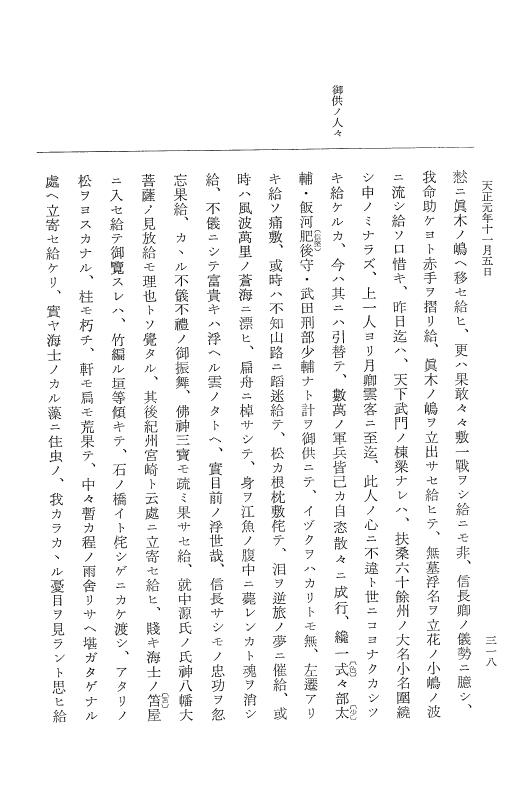 天正元年十一月五日
三一八
御供ノ人々
憖ニ眞木ノ嶋ヘ移セ給ヒ、更ハ果敢々々敷一戰ヲシ給ニモ非、信長卿ノ儀勢ニ臆シ、
我命助ケヨト赤手ヲ摺リ給、眞木ノ嶋ヲ立出サセ給ヒテ、無墓浮名ヲ立花ノ小嶋ノ波
ニ流シ給ソロ惜キ、昨日迄ハ、天下武門ノ棟梁ナレハ、扶桑六十餘州ノ大名小名圍繞
シ申ノミナラズ、上一人ヨリ月卿雲客ニ至迄、此人ノ心ニ不違ト世ニコヨナクカシツ
キ給ケルカ、今ハ其ニハ引替テ、數萬ノ軍兵皆己カ自恣散々ニ成行、纔一式〔色〕々部太〔少〕
輔・飯河肥後守〔信堅〕・武田刑部少輔ナト計ヲ御供ニテ、イヅクヲハカリトモ無、左遷アリ
キ給ソ痛敷、或時ハ不知山路ニ蹈迷給テ、松カ根枕敷侘テ、泪ヲ逆旅ノ夢ニ催給、或
時ハ風波萬里ノ蒼海ニ漂ヒ、扁舟ニ棹サシテ、身ヲ江魚ノ腹中ニ薨レンカト魂ヲ消シ
給、不儀ニシテ富貴キハ浮ヘル雲ノタトヘ、實目前ノ浮世哉、信長サシモノ忠功ヲ忽
忘果給、カヽル不儀不禮ノ御振舞、佛神三寶モ疏ミ果サセ給、就中源氏ノ氏神八幡大
菩薩ノ見放給モ理也トソ覺タル、其後紀州宮崎ト云處ニ立寄セ給ヒ、賤キ海士ノ笘〔苫〕屋
ニ入セ給テ御覽スレハ、竹編ル垣等傾キテ、石ノ橋イト侘シゲニカケ渡シ、アタリノ
松ヲヨスカナル、柱モ朽チ、軒モ扃モ荒果テ、中々暫カ程ノ雨舍リサヘ堪ガタゲナル
處ヘ立寄セ給ケリ、實ヤ海士ノカル藻ニ住虫ノ、我カラカヽル憂目ヲ見ラント思ヒ給